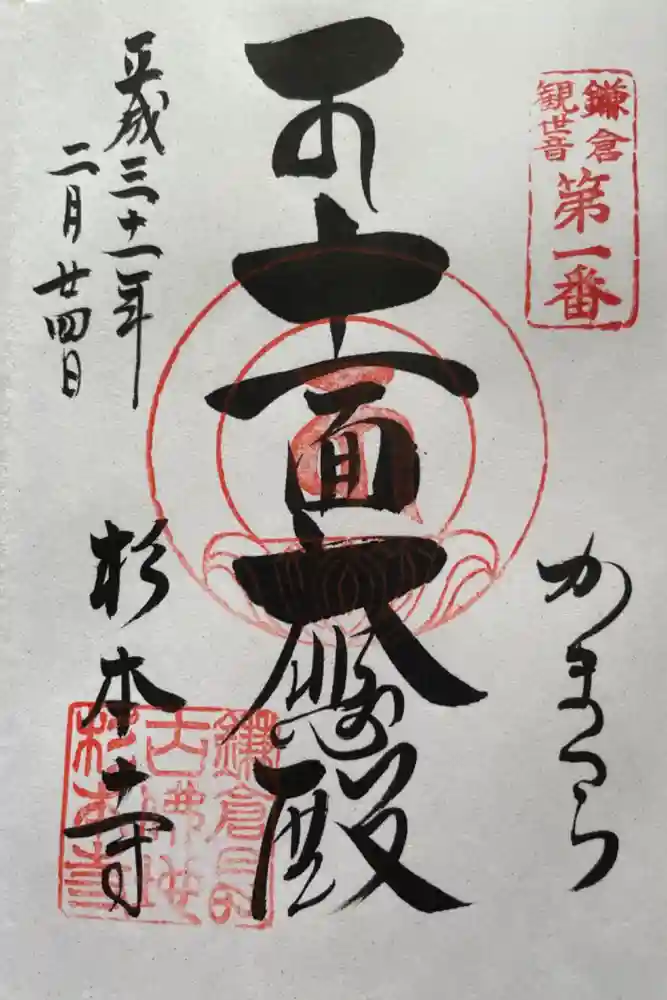 鎌倉
観世音
第一番
かまくら
十一面大悲殿
平成三十一年
二月廿四日
杉本寺
杉本寺